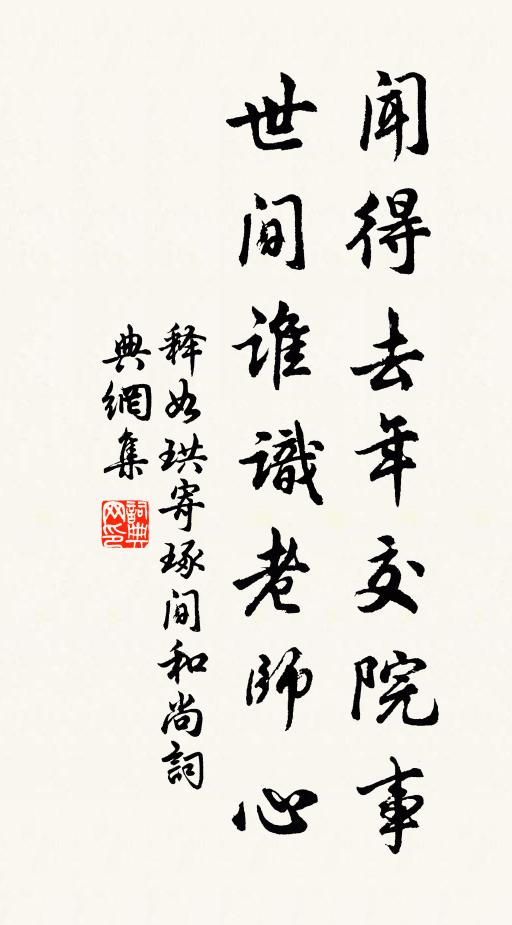 闻得去年交院事
世间谁識老師心
释如珙寄琢间和尚詞
典網集
詞典网印